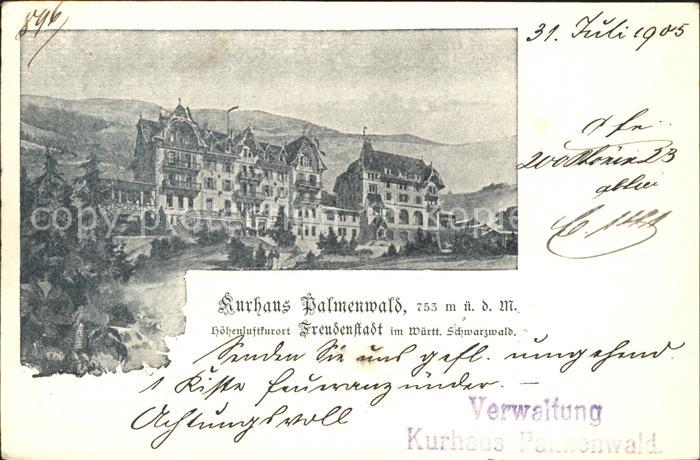 896
31. Juli 1905
Kurhaus Palmenwald, 753 m ü. d. M.
Höhenluftkurort Freudenstadt im Württ. Schwarzwald.
Senden Sie uns gefl. umgehend
1 Kiste Feueranzünder. —
Achtungsvoll
Verwaltung
Kurhaus Palmenwald.